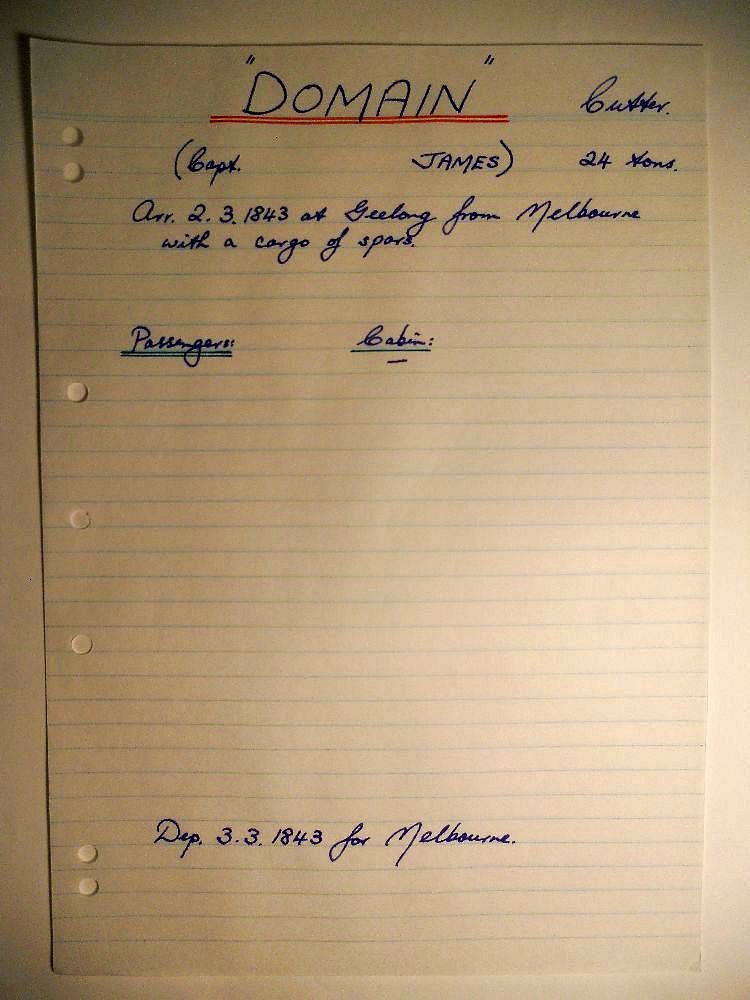 "DOMAIN" Cutter.
(Capt. JAMES) 24 tons.
Arr. 2.3.1843 at Geelong from Melbourne
with a cargo of spars.
Passengers: Cabin:
—
Dep. 3.3.1843 for Melbourne.